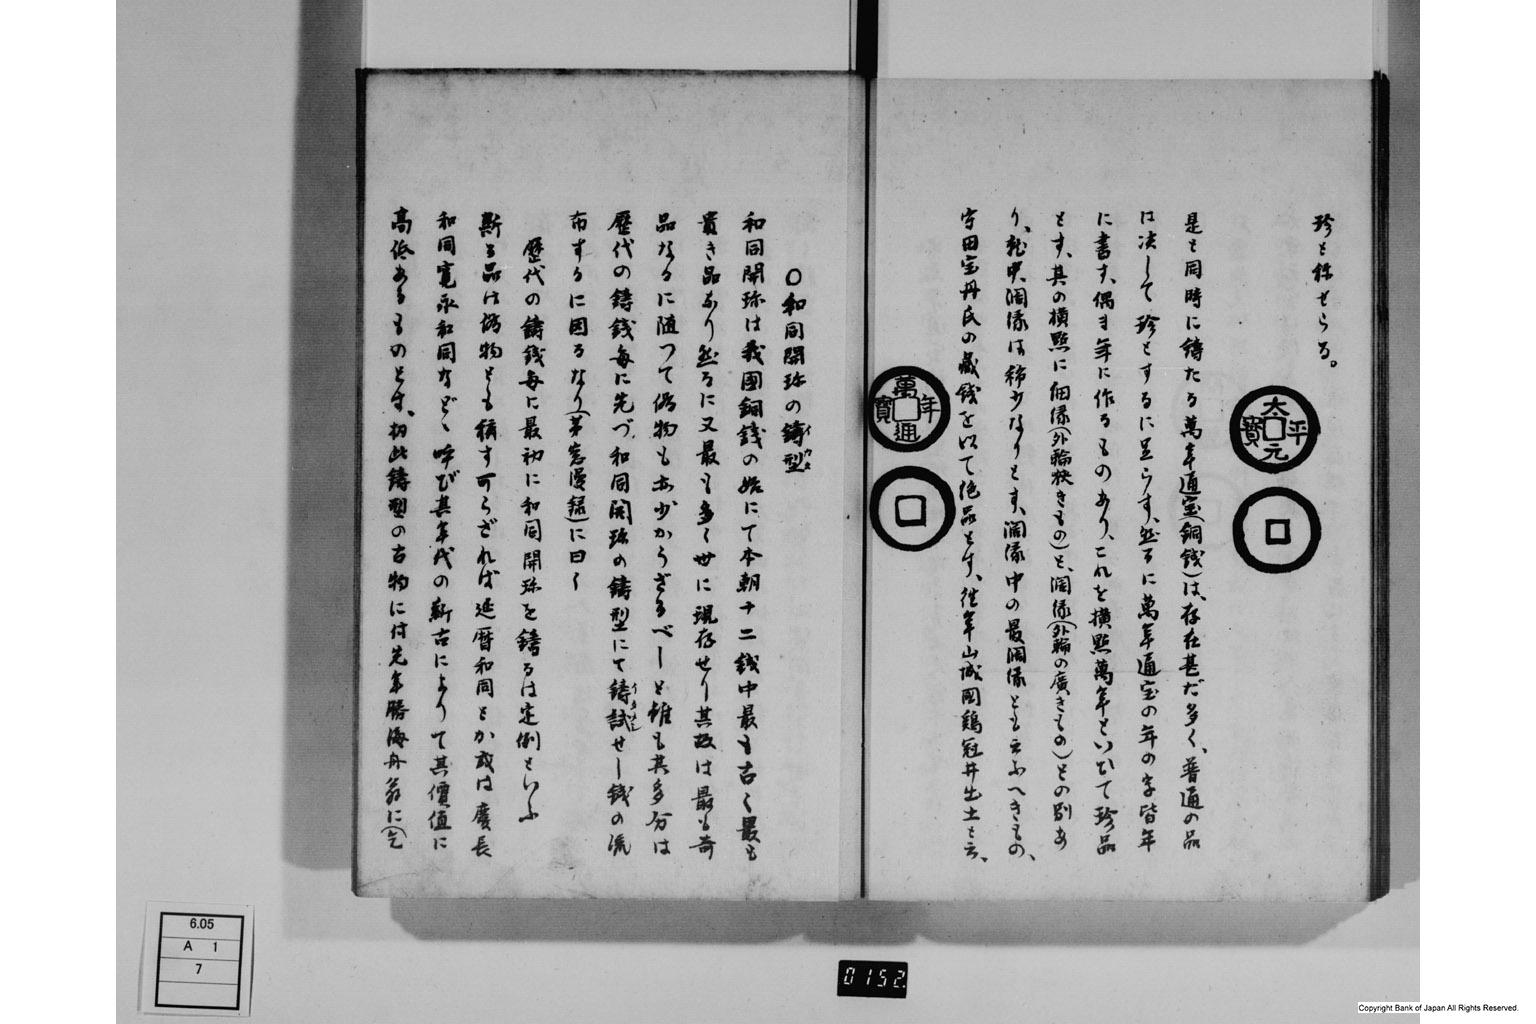 珍と称せらる。
太平元寳
是と同時に鋳たる萬年通宝(銅銭)は、存在甚だ多く、普通の品
は决して珍とするに足らす、然るに萬年通宝の年の字皆年
に書す、偶ま年に作るものあり、これを横點萬年といひて珍品
とす、其の横點に細縁(外輪狭きもの)と、濶縁(外輪の廣きもの)との別あ
り、就中、濶縁は稀少なりとす、濶縁中の最濶縁とも云ふへきもの、
守田宝丹氏の蔵銭を以て絶品とす、往年山城國鶏冠井出土と云、
萬年通寳
〇和同開珎の鋳型
イカタ
和同開珎は我國銅銭の始にて本朝十二銭中最も古く最も
貴き品なり然るに又最も多く世に現存せり其故は最も奇
品なるに随つて偽物も亦少からざるべしと雖も其多分は
歴代の鋳銭毎に先づ和同開珎の鋳型にて鋳試せし銭の流
布するに因るなり(茅窓漫録)に曰く
歴代の鋳銭毎に最初に和同開珎を鋳るは定例といふ
斯る品は偽物とも称す可らざれば延暦和同とか或は慶長
和同寛永和同など、呼び其年代の新古によりて其價値に
高低あるものとす、扨此鋳型の古物に付先年勝海舟翁に(乞
6.05
A 1
7
0152.
Copyright Bank of Japan All Rights Reserved.